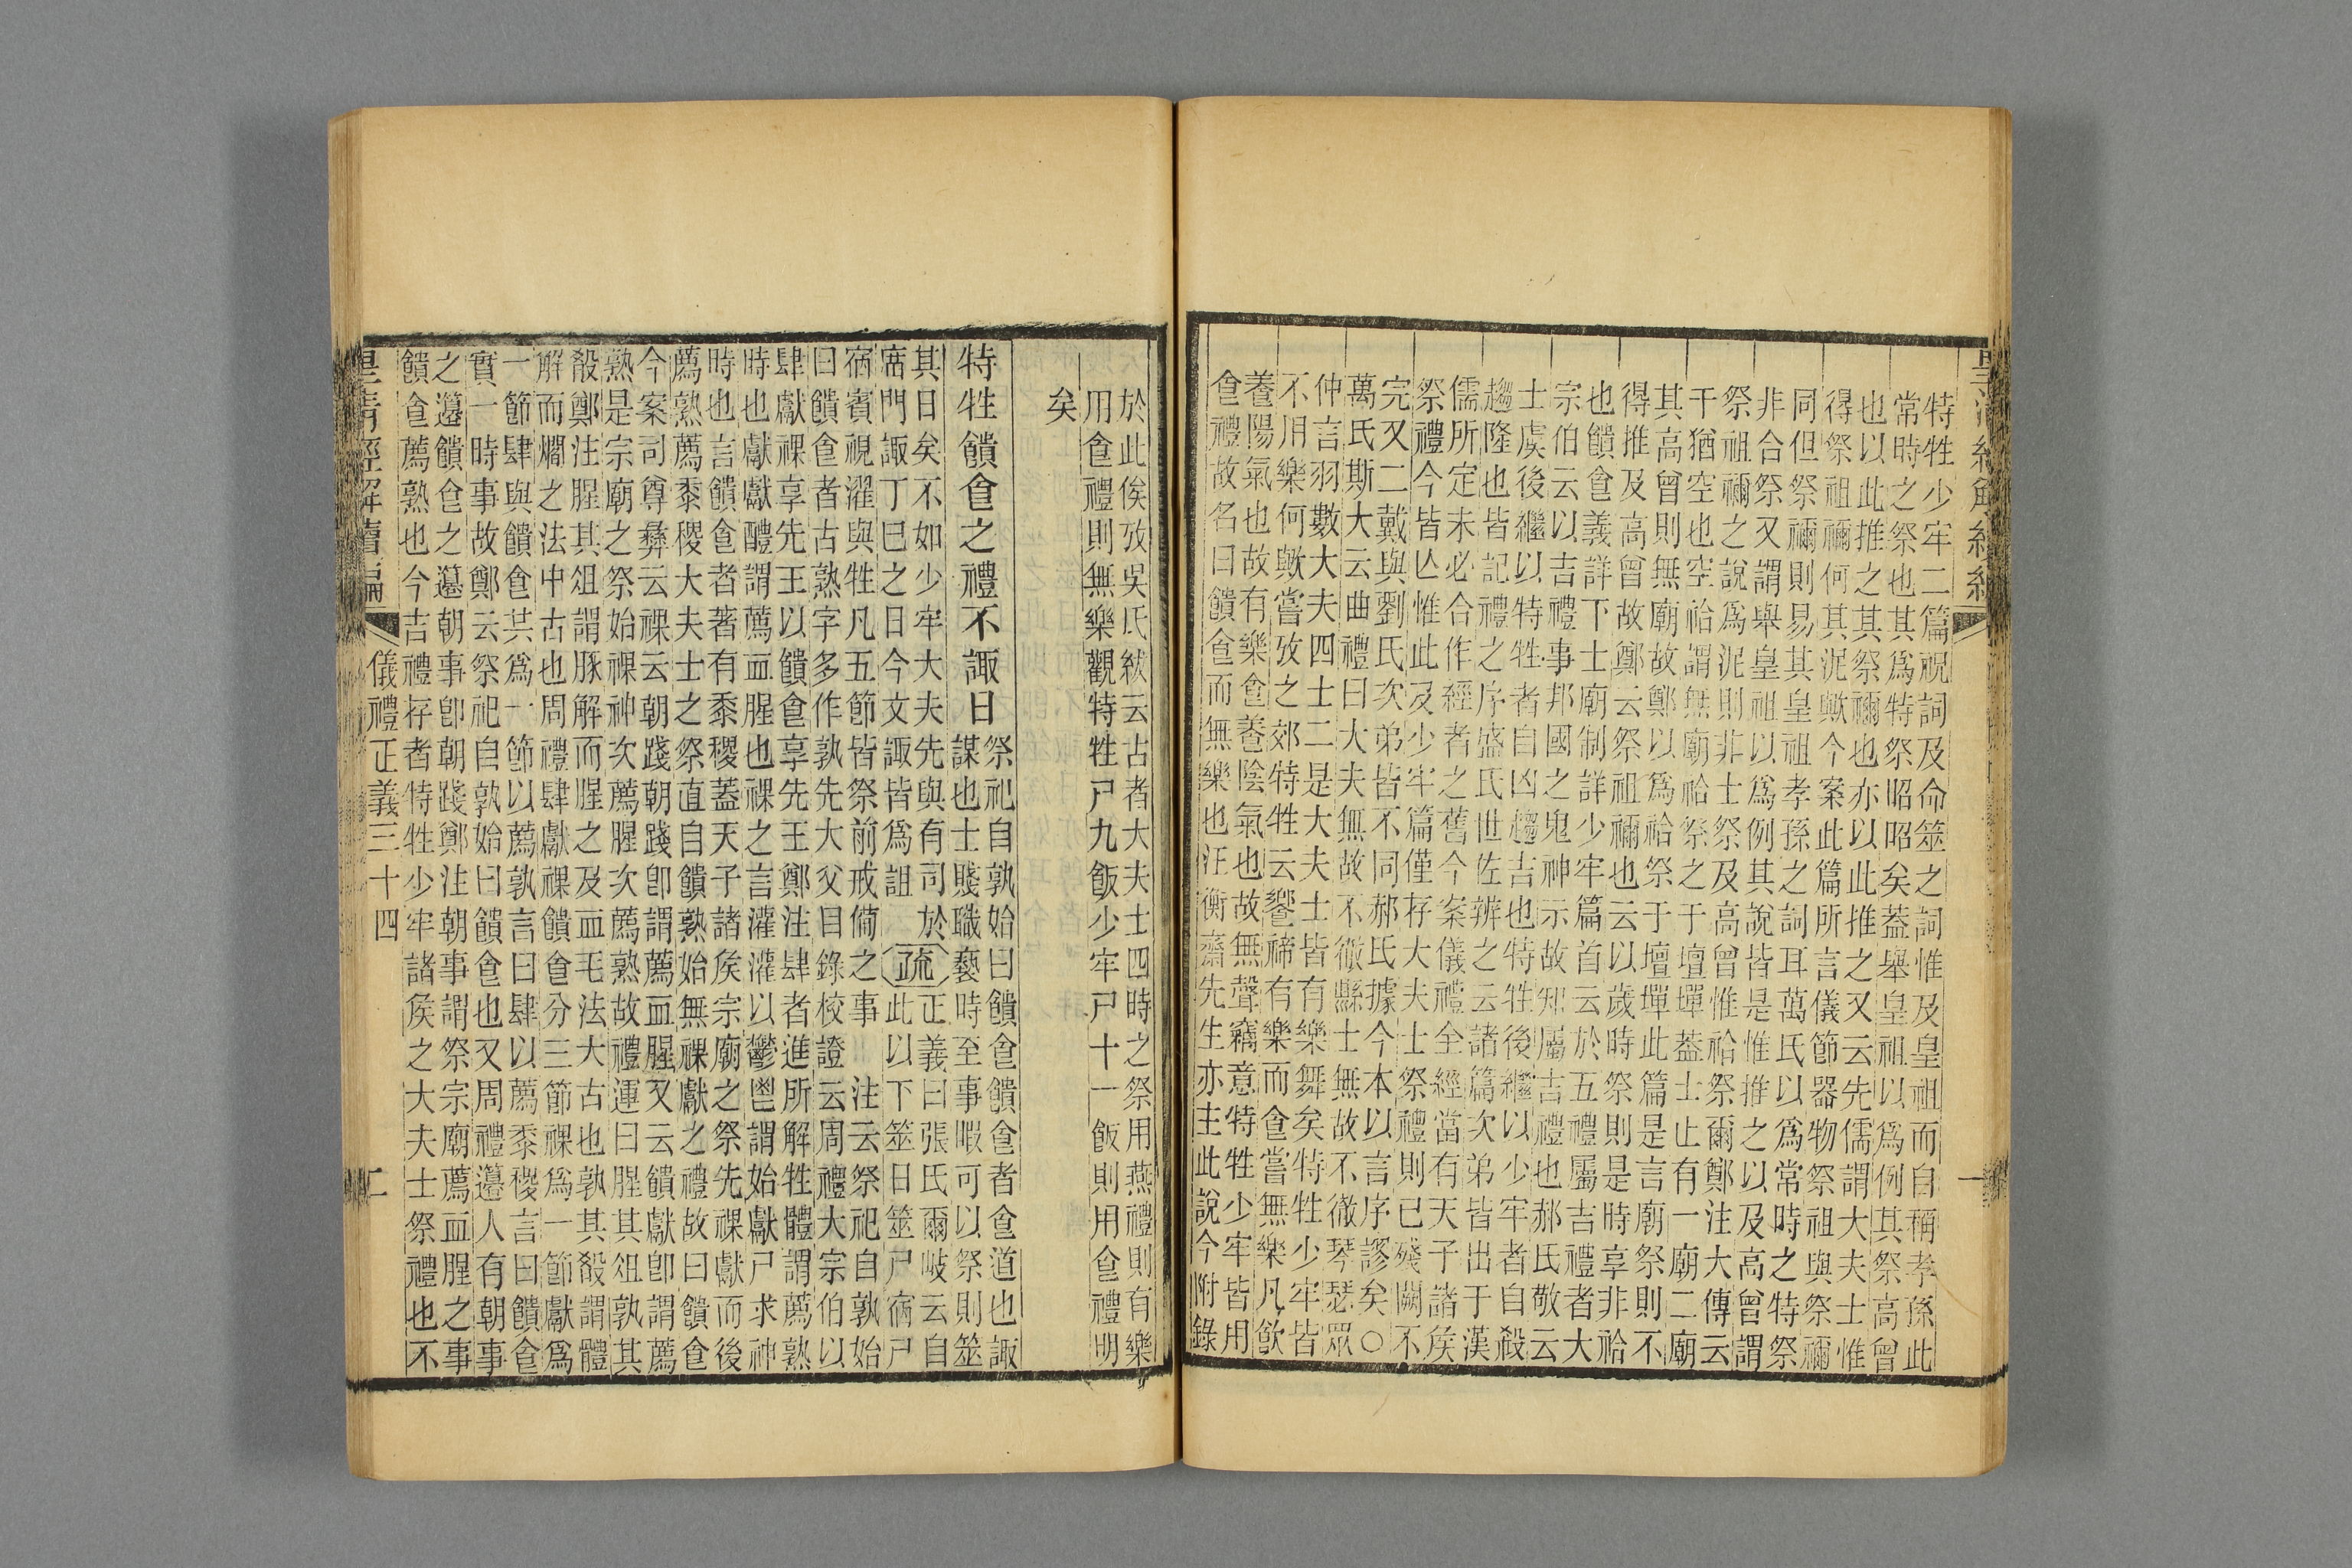 特牲少牢二篇祝詞及命筮之詞惟及皇祖而自稱孝孫此
常時之祭也其爲特祭昭昭矣蓋舉皇祖以爲例其祭高曾
也以此推之其祭禰也亦以此推之又云先儒謂大夫士惟
得祭祖禰何其泥歟今案此篇所言儀節器物祭祖與祭禰
同但祭禰則易其皇祖孝孫之詞耳萬氏以爲常時之特祭
非合祭又謂舉皇祖以爲例其說皆是惟推之以及高曾謂
祭祖禰之說爲泥則非士祭及高曾惟祫祭爾鄭注大傳云
干猶空也空祫謂無廟祫祭之于壇墠蓋士止有一廟二廟
其高曾則無廟故鄭以爲祫祭于壇墠此篇是言廟祭則不
得推及高曾故鄭云祭祖禰也云以歲時祭則是時享非祫
也饋食義詳下士廟制詳少牢篇首云於五禮屬吉禮者大
宗伯云以吉禮事邦國之鬼神示故知屬吉禮也郝氏敬云
士虞後繼以特牲者自凶趨吉也特牲後繼以少牢者自殺
趨隆也皆記禮之序盛氏世佐辨之云諸篇次弟皆出于漢
儒所定未必合作經者之舊今案儀禮全經當有天子諸侯
祭禮今皆亾惟此及少牢篇僅存大夫士祭禮則已殘闕不
完又二戴與劉氏次弟皆不同郝氏據今本以言序謬矣○
萬氏斯大云曲禮曰大夫無故不徹縣士無故不徹琴瑟眾
仲言羽數大夫四士二是大夫士皆有樂舞矣特牲少牢皆
不用樂何歟嘗攷之郊特牲云饗禘有樂而食嘗無樂凡飮
養陽氣也故有樂食養陰氣也故無聲竊意特牲少牢皆用
食禮故名曰饋食而無樂也汪衡齋先生亦主此說今附錄
於此俟攷吳氏紱云古者大夫士四時之祭用燕禮則有樂
用食禮則無樂觀特牲尸九飯少牢尸十一飯則用食禮明
矣
特牲饋食之禮不諏日
祭祀自孰始曰饋食饋食者食道也諏
謀也士賤職褻時至事暇可以祭則筮
其日矣不如少牢大夫先與有司於
席門諏丁巳之日今文諏皆爲詛
疏
正義曰張氏爾岐云自
此以下筮日筮尸宿尸
宿賓視濯與牲凡五節皆祭前戒備之事 注云祭祀自孰始
曰饋食者古熟字多作孰先大父目錄校證云周禮大宗伯以
肆獻祼享先王以饋食享先王鄭注肆者進所解牲體謂薦熟
時也獻獻醴謂薦血腥也祼之言灌灌以鬱鬯謂始獻尸求神
時也言饋食者著有黍稷蓋天子諸侯宗廟之祭先祼獻而後
薦熟薦黍稷大夫士之祭直自饋熟始無祼獻之禮故曰饋食
今案司尊彝云祼云朝踐朝踐卽謂薦血腥又云饋獻卽謂薦
熟是宗廟之祭始祼神次薦腥次薦熟故禮運曰腥其俎孰其
殽鄭注腥其俎謂豚解而腥之及血毛法大古也孰其殽謂體
解而爓之法中古也周禮肆獻祼饋食分三節祼爲一節獻爲
一節肆與饋食共爲一節以薦孰言曰肆以薦黍稷言曰饋食
實一時事故鄭云祭祀自孰始曰饋食也又周禮籩人有朝事
之籩饋食之籩朝事卽朝踐鄭注朝事謂祭宗廟薦血腥之事
饋食薦熟也今吉禮存者特牲少牢諸侯之大夫士祭禮也不
皇清經解續編 儀禮正義三十四 二